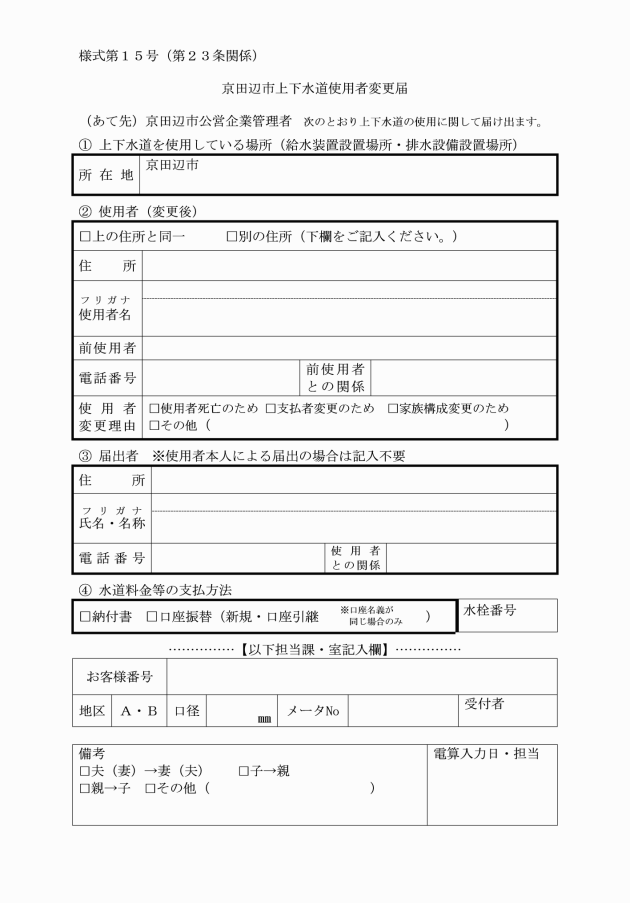 様式第１５号（第２３条関係）
京田辺市上下水道使用者変更届
（あて先）京田辺市公営企業管理者　次のとおり上下水道の使用に関して届け出ます。
① 上下水道を使用している場所（給水装置設置場所・排水設備設置場所）
所在地　京田辺市
② 使用者（変更後）
□上の住所と同一　□別の住所（下欄をご記入ください。）
住　所
フリガナ
使用者名
前使用者
電話番号　前使用者
との関係
使用者　□使用者死亡のため □支払者変更のため □家族構成変更のため
変更理由　□その他（　）
③ 届出者　※使用者本人による届出の場合は記入不要
住　所
フリガナ
氏名・名称
電話番号　使用者
との関係
④ 水道料金等の支払方法
□納付書　□口座振替（新規・口座引継　※口座名義が
同じ場合のみ　）
水栓番号
……………【以下担当課・室記入欄】……………
お客様番号
地区　A・B　口径　mm　メータNo　受付者
備考　電算入力日・担当
□夫（妻）→妻（夫）　□子→親
□親→子　□その他（　）